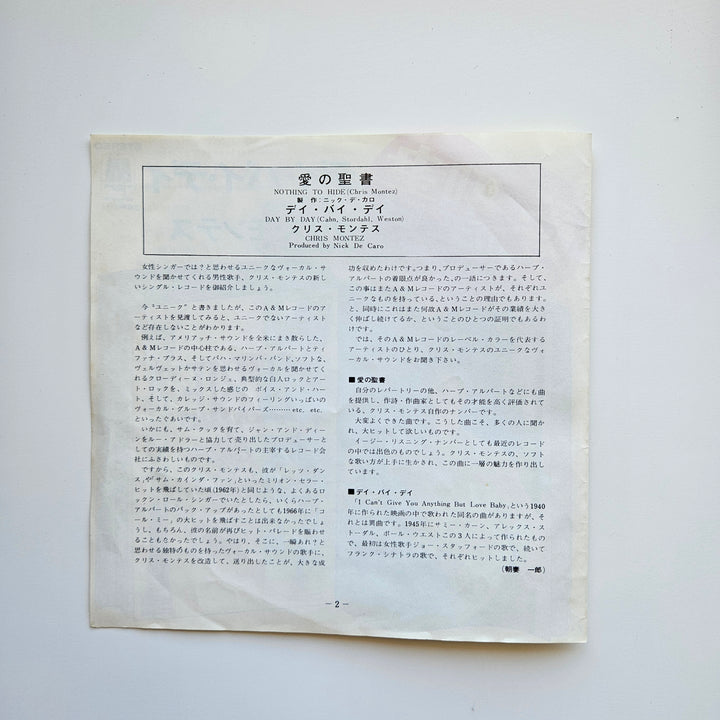 愛の聖書
NOTHING TO HIDE(Chris Montez)
製作:ニック・デ・カロ
デイ・バイ・デイ
DAY BY DAY(Cahn, Stordahl, Weston)
クリス・モンテス
CHRIS MONTEZ
Produced by Nick De Caro
女性シンガーでは?と思わせるユニークなヴォーカル・サ
ウンドを聞かせてくれる男性歌手、クリス・モンテスの新し
いシングル・レコードを御紹介しましょう。
今“ユニーク”と書きましたが、このA&Mレコードのアー
ティストを見渡してみると、ユニークでないアーティスト
など存在しないことがわかります。
例えば、アメリアッチ・サウンドを全米にまき散らした、
A&Mレコードの中心柱である、ハーブ・アルパートとティ
ファナ・ブラス、そしてバハ・マリンバ・バンド、ソフトな、
ヴェルヴェットかサテンを思わせるヴォーカルを聞かせてく
れるクローディーヌ・ロンジェ、典型的な白人ロックとアー
ト・ロックを、ミックスした感じの ボイス・アンド・ハー
ト、そして、カレッジ・サウンドのフィーリングいっぱいの
ヴォーカル・グループ・サンドパイパーズ………etc. etc.
といったぐあいです。
いかにも、サム・クックを育て、ジャン・アンド・ディー
ンをルー・アドラーと協力して売り出したプロデューサーと
しての実績を持つハーブ・アルパートの主宰するレコード会
社にふさわしいものです。
ですから、このクリス・モンテスも、彼が「レッツ・ダン
ス」や「サム・カインダ・ファン」といったミリオン・セラー・
ヒットを飛ばしていた頃(1962年)と同じような、よくあるロ
ックン・ロール・シンガーでいたとしたら、いくらハーブ・
アルパートのバック・アップがあったとしても1966年に「コ
ール・ミー」の大ヒットを飛ばすことは出来なかったでしょ
うし、もちろん、彼の名前が再びヒット・パレードを賑わせ
ることもなかったでしょう。やはり、そこに、一瞬あれ?と
思わせる独特のものを持ったヴォーカル・サウンドの歌手に、
クリス・モンテスを改造して、送り出したことが、大きな成
功を収めたわけです。つまり、プロデューサーであるハーブ・
アルパートの着眼点が良かった、の一語につきます。そして、
この事はまたA&Mレコードのアーティストが、それぞれユ
ニークなものを持っている、ということの理由でもあります。
と、同時にこれはまた何故A&Mレコードがその業績を大き
く伸ばし続けてるか、ということのひとつの証明でもあるわ
けです。
では、そのA&Mレコードのレーベル・カラーを代表する
アーティストのひとり、クリス・モンテスのユニークなヴォ
ーカル・サウンドをお聞き下さい。
■愛の聖書
自分のレパートリーの他、ハーブ・アルパートなどにも曲
を提供し、作詩・作曲家としてもその才能を高く評価されて
いる、クリス・モンテス自作のナンバーです。
大変よくできた曲です。こうした曲こそ、多くの人に聞か
れ、大ヒットして欲しいものです。
イージー・リスニング・ナンバーとしても最近のレコード
の中では出色のものでしょう。クリス・モンテスの、ソフト
な歌い方が上手に生かされ、この曲に一層の魅力を作り出し
ています。
■デイ・バイ・デイ
「I Can't Give You Anything But Love Baby」という1940
年に作られた映画の中で歌われた同名の曲がありますが、そ
れとは異曲です。1945年にサミー・カーン、アレックス・ス
トーダル、ポール・ウエストこの3人によって作られたもの
で、最初は女性歌手ジョー・スタッフォードの歌で、続いて
フランク・シナトラの歌で、それぞれヒットしました。
(朝妻 一郎)
－2－